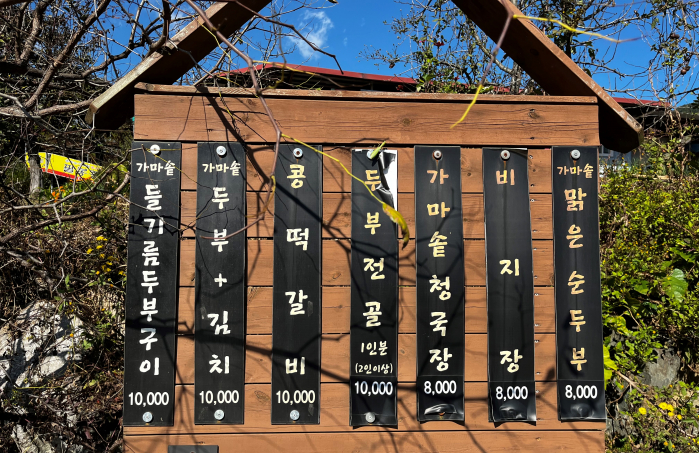 가마솥
들기름두부구이
10,000
가마솥
두부+김치
10,000
콩떡갈비
10,000
두부전골
1인분
(2인이상)
10,000
가마솥청국장
8,000
비지장
8,000
가마솥
맑은순두부
8,000